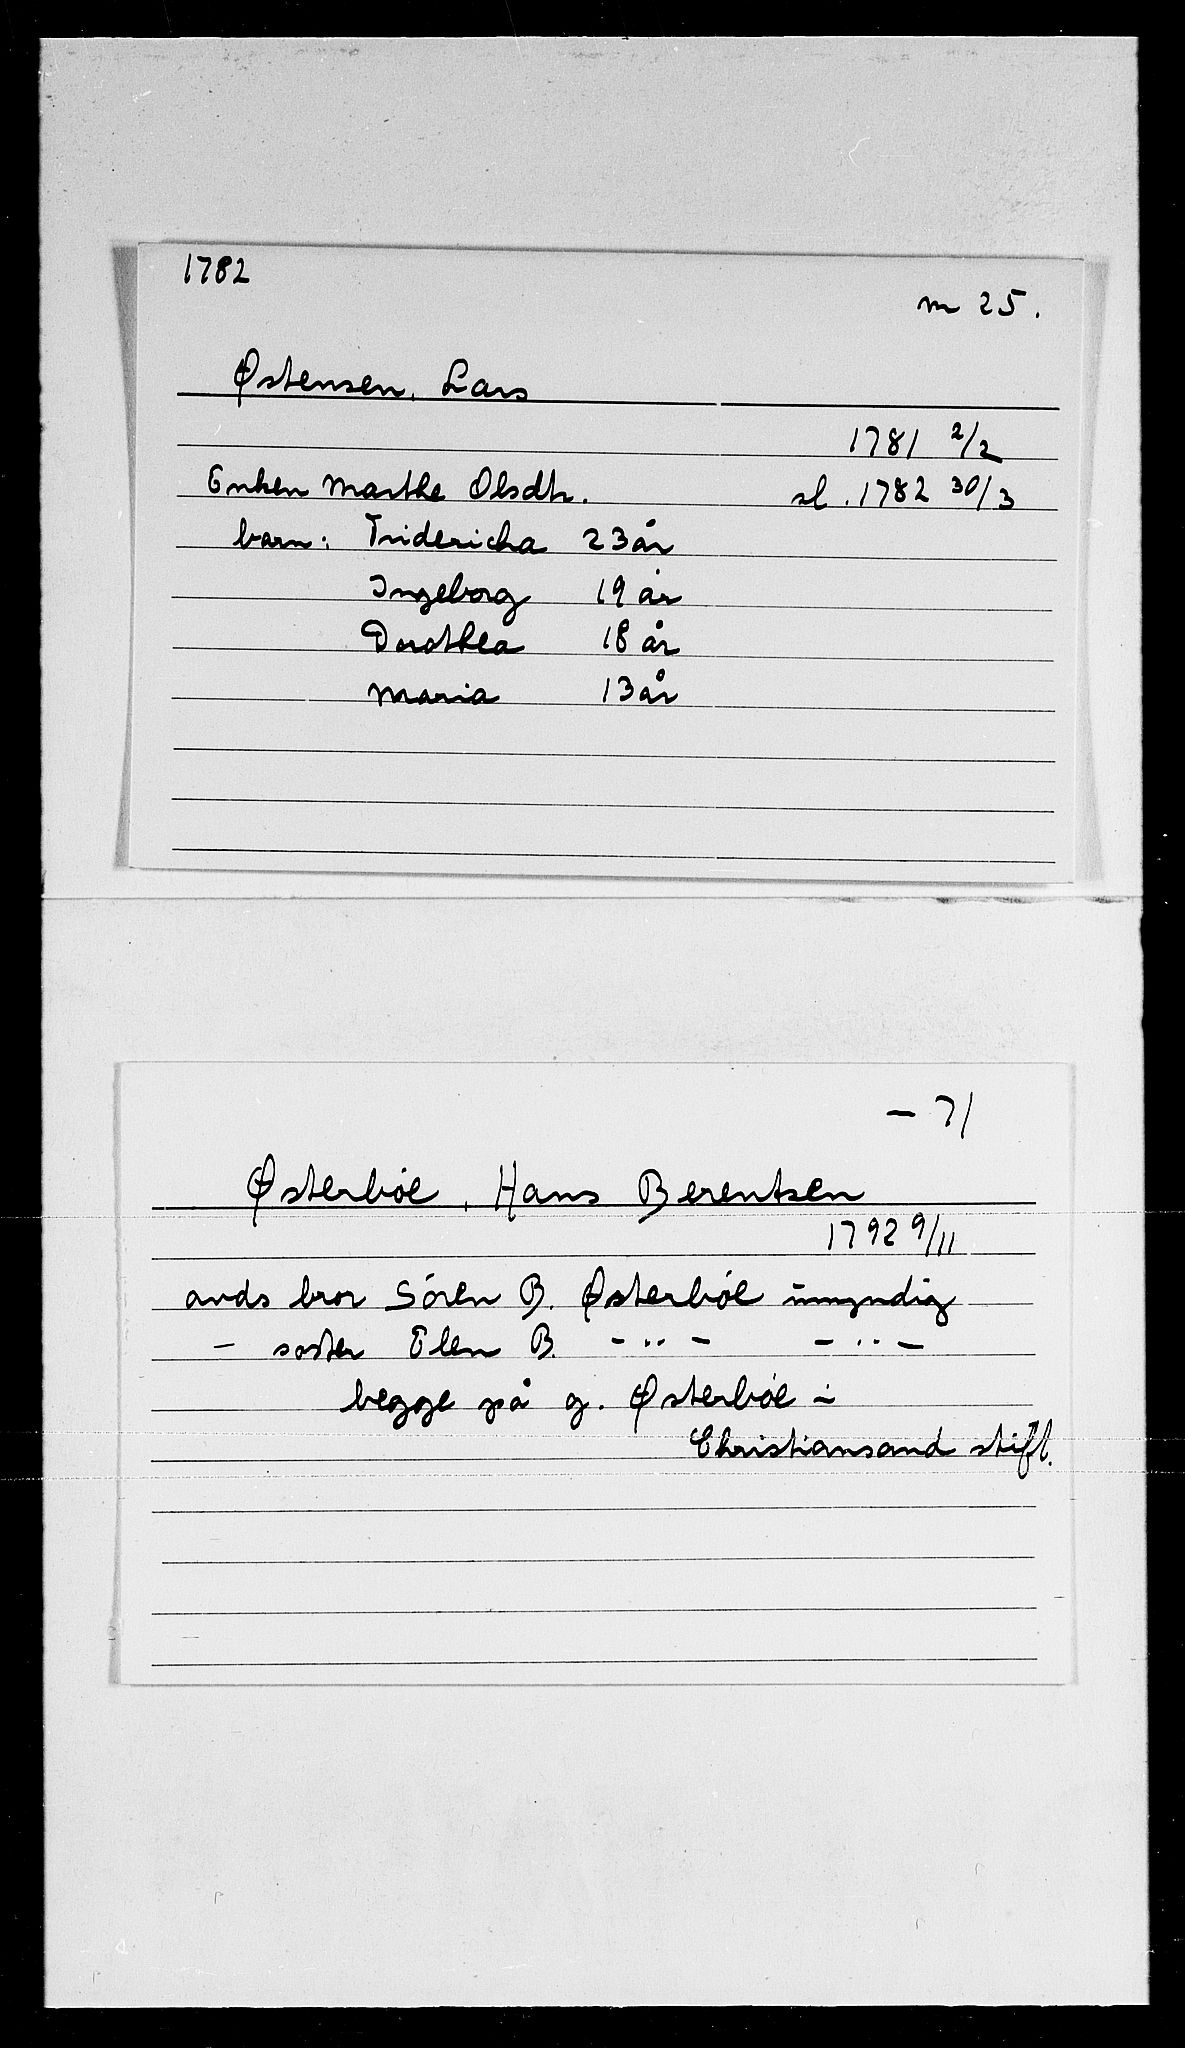 1782
m 25.
Østensen, Lars
1781 2/2
Enken Marthe Olsdtr. sl. 1782 30/3
barn: Fridericha 23 år
Ingeborg 19 år
Dorothea 18 år
Maria 13 år
- 71
Østerbøe, Hans Berentsen
1792 9/11
avds bror Sören B. Østerbøe umyndig
- søster Elen B. - " - - " -
begge på g. Østerbøe i
Christiansand stift.